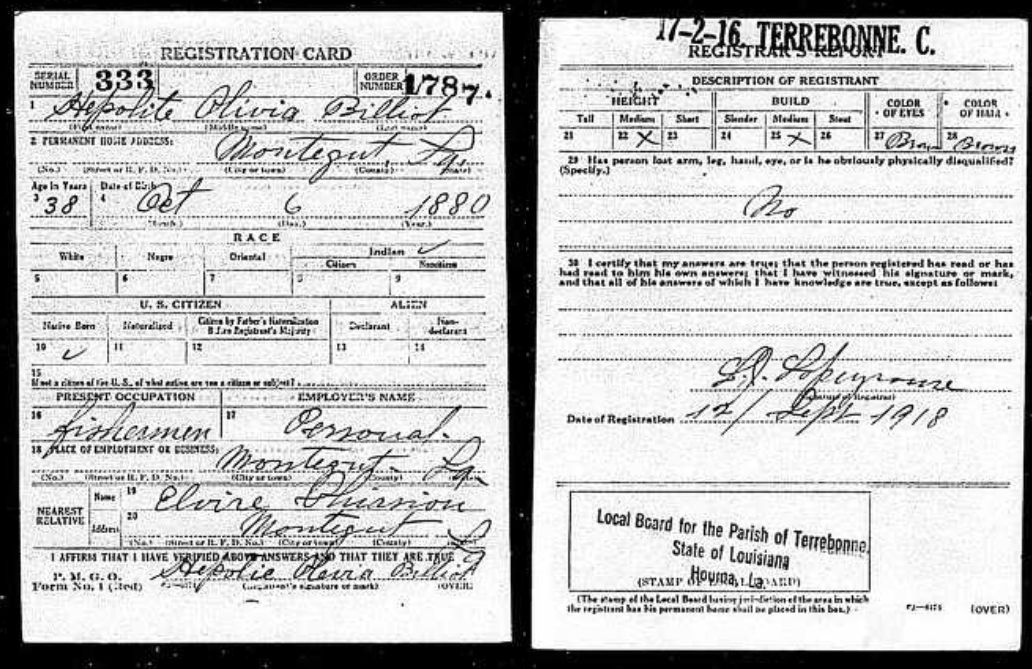 REGISTRATION CARD
SERIAL NUMBER 333 ORDER NUMBER 1787.
1 Hepolite Olivia Billiot
(First name) (Middle name) (Last name)
2 PERMANENT HOME ADDRESS:
Montegut, La.
(No.) (Street or R. F. D. No.) (City or town) (County) (State)
Age in Years Date of Birth
3 38 4 Oct 6 1880
(Month.) (Day.) (Year.)
RACE
White Negro Oriental Indian ✓
Citizen Noncitizen
5 6 7 8 9
U. S. CITIZEN ALIEN
Native Born Naturalized Citizen by Father's Naturalization Before Registrant's Majority Declarant Non-declarant
10 ✓ 11 12 13 14
15
If not a citizen of the U. S., of what nation are you a citizen or subject?
PRESENT OCCUPATION EMPLOYER'S NAME
16 fishermen 17 Personal
18 PLACE OF EMPLOYMENT OR BUSINESS:
Montegut La.
(No.) (Street or R. F. D. No.) (City or town) (County) (State)
NEAREST RELATIVE
Name 19 Elvire
Address 20 Montegut
(No.) (Street or R. F. D. No.) (City or town) (County) (State)
I AFFIRM THAT I HAVE VERIFIED ABOVE ANSWERS AND THAT THEY ARE TRUE
P. M. G. O.
Form No. 1 (Red) Hepolie Olevia Billiot
(Registrant's signature or mark) (OVER)
17-2-16 TERREBONNE. C.
REGISTRAR'S REPORT
DESCRIPTION OF REGISTRANT
HEIGHT BUILD COLOR OF EYES COLOR OF HAIR
Tall Medium Short Slender Medium Stout
21 22 X 23 24 25 X 26 27 Brown 28 Brown
29 Has person lost arm, leg, hand, eye, or is he obviously physically disqualified?
(Specify.)
No
30 I certify that my answers are true; that the person registered has read or has
had read to him his own answers; that I have witnessed his signature or mark,
and that all of his answers of which I have knowledge are true, except as follows:
(Signature of Registrar)
Date of Registration 12/ Sept 1918
Local Board for the Parish of Terrebonne,
State of Louisiana
Houma, La.
(STAMP OF LOCAL BOARD)
(The stamp of the Local Board having jurisdiction of the area in which
the registrant has his permanent home shall be placed in this box.)
(OVER)